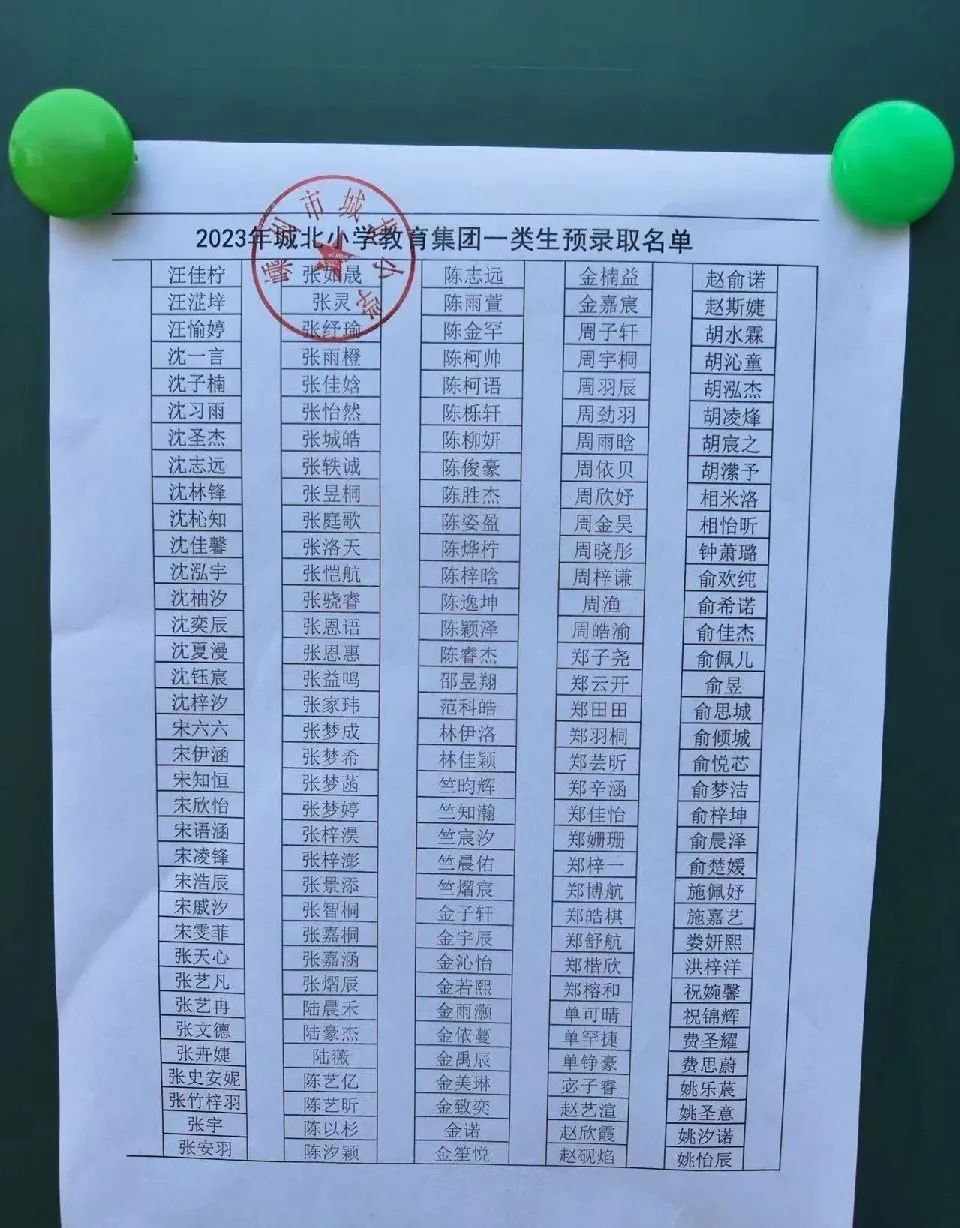 2023年城北小学教育集团一类生预录取名单
汪佳柠 张如晟 陈志远 金楠益 赵俞诺
汪淽垶 张灵 陈雨萱 金嘉宸 赵斯婕
汪愉婷 张纾瑜 陈金罕 周子轩 胡水霖
沈一言 张雨橙 陈柯帅 周宇桐 胡沁童
沈子楠 张佳焓 陈柯语 周羽辰 胡泓杰
沈习雨 张怡然 陈栎轩 周劲羽 胡凌烽
沈圣杰 张城皓 陈柳妍 周雨晗 胡宸之
沈志远 张轶诚 陈俊豪 周依贝 胡潆予
沈林锋 张昱桐 陈胜杰 周欣妤 相米洛
沈杺知 张庭歌 陈姿盈 周金昊 相怡昕
沈佳馨 张洛天 陈烨柠 周晓彤 钟萧璐
沈泓宇 张恺航 陈梓晗 周梓谦 俞欢纯
沈柚汐 张骁睿 陈逸坤 周渔 俞希诺
沈奕辰 张恩语 陈颖泽 周皓渝 俞佳杰
沈夏漫 张恩惠 陈睿杰 郑子尧 俞佩儿
沈钰宸 张益鸣 邵昱翔 郑云开 俞昱
沈梓汐 张家玮 范科皓 郑田田 俞思城
宋六六 张梦成 林伊洛 郑羽桐 俞倾城
宋伊涵 张梦希 林佳颖 郑芸昕 俞悦芯
宋知恒 张梦菡 竺昀辉 郑辛涵 俞梦洁
宋欣怡 张梦婷 竺知瀚 郑佳怡 俞梓坤
宋语涵 张梓淏 竺宸汐 郑姗珊 俞晨泽
宋凌锋 张梓澎 竺晨佑 郑梓一 俞楚媛
宋浩辰 张景添 竺熠宸 郑博航 施佩妤
宋戚汐 张智桐 金子轩 郑皓棋 施嘉艺
宋雯菲 张嘉桐 金宇辰 郑舒航 娄妍熙
张天心 张嘉涵 金沁怡 郑楷欣 洪梓洋
张艺凡 张熠辰 金若熙 郑榕和 祝婉馨
张艺冉 陆晨禾 金雨灏 单可晴 祝锦辉
张文德 陆豪杰 金依蔓 单罕捷 费圣耀
张卉婕 陆薇 金禹辰 单铮豪 费思蔚
张史安妮 陈艺亿 金美琳 宓子睿 姚乐苠
张竹梓羽 陈艺昕 金致奕 赵艺渲 姚圣意
张宇 陈以杉 金诺 赵欣霞 姚汐诺
张安羽 陈汐颖 金笙悦 赵砚焰 姚怡辰